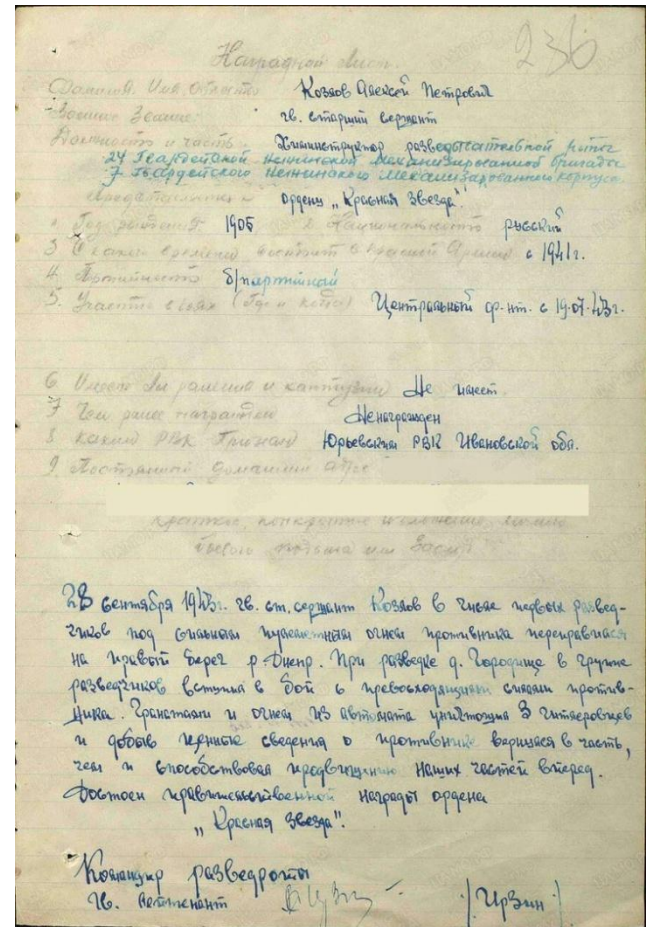 236
Наградной Лист.
Фамилия, Имя, Отчество Козлов Алексей Петрович
Военное Звание гв. старший сержант
Должность и часть Химинструктор разведывательной роты
24 Гвардейской механизированной бригады
7 Гвардейского механизированного корпуса
Представляется ордену „Красная Звезда".
1. Год рождения 1905 2. Национальность русский
3. С какого времени состоит в Красной Армии с 1941г.
4. Партийность б/партийный
5. Участие в боях (где и когда) Центральный фр-нт. с 19.07.43г.
6. Имеет ли ранения и контузии Не имеет.
7. Чем ранее награжден Ненагражден
8. Каким РВК Призван Юрьевским РВК Ивановской обл.
9. Постоянный домашний адрес
Краткое, конкретное изложение личного
боевого подвига или Заслуг
28 сентября 1943г. гв. ст. сержант Козлов в числе первых развед-
чиков под сильным пулеметным огнем противника переправился
на правый берег р. Днепр. При разведке д. Городище в группе
разведчиков вступил в бой с превосходящими силами против-
ника. Гранатами и огнем из автомата уничтожил 3 гитлеровцев
и добыв ценные сведения о противнике вернулся в часть,
чем и способствовал продвижению наших частей вперед.
Достоен правительственной награды ордена
„Красная Звезда".
Командир разведроты
гв. лейтенант /Ирзин/